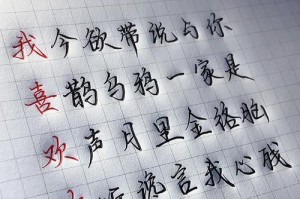 我今欲带说与你
喜鹊乌鸦一家是
欢声月里金络胞
谎言我心残